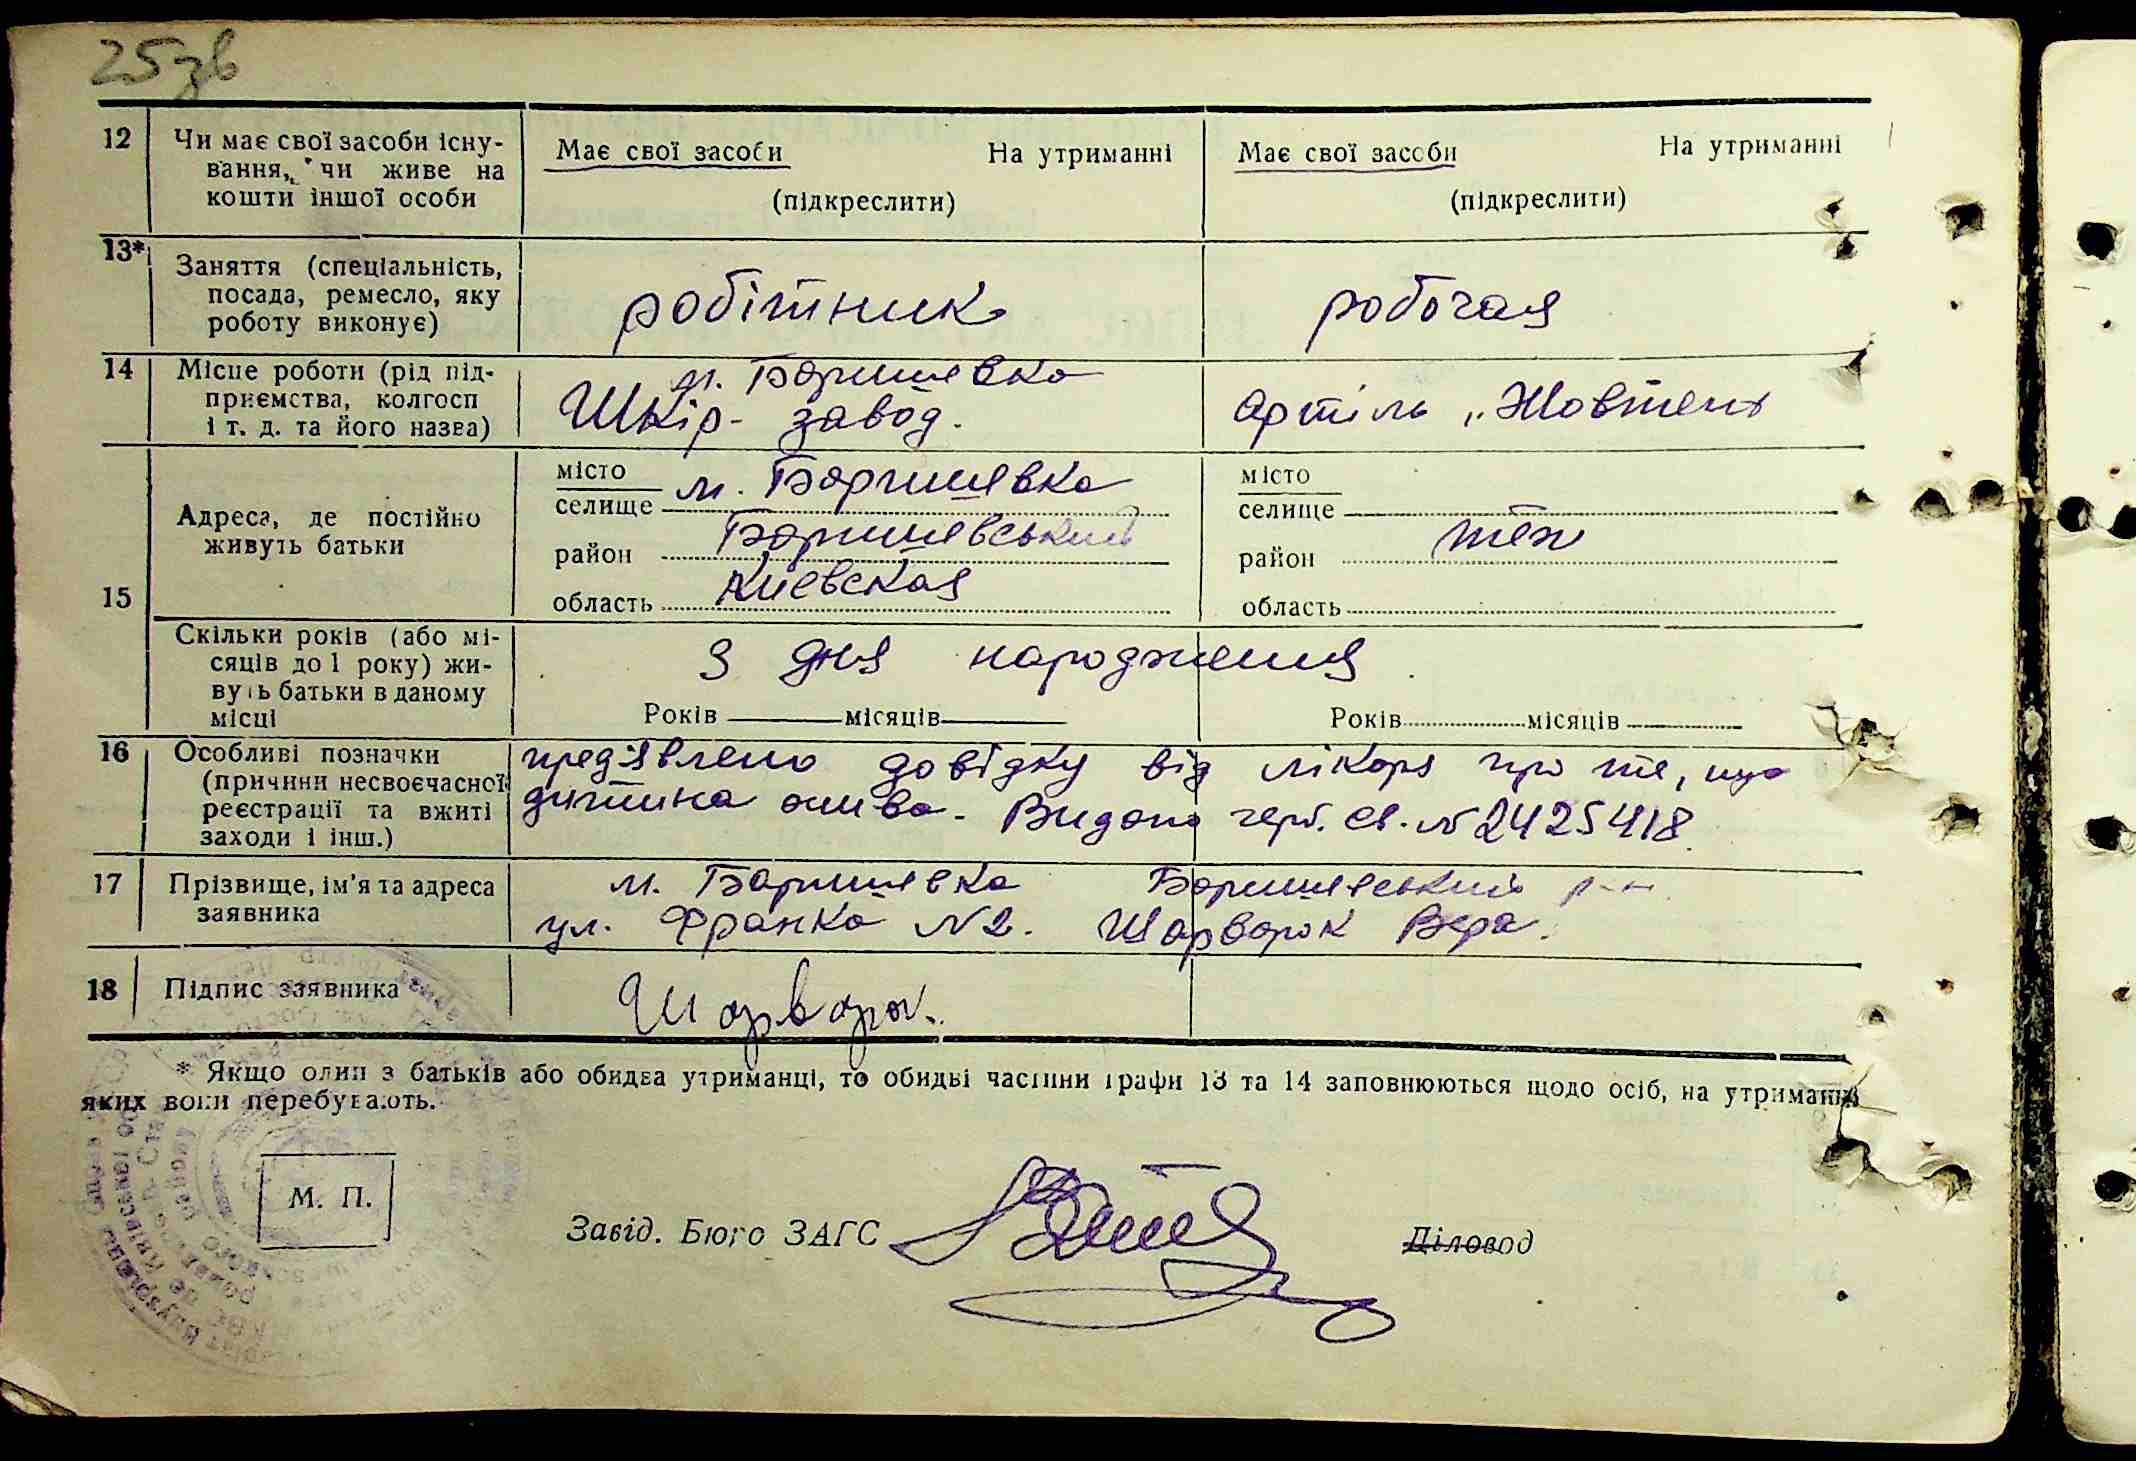 25зв
12 Чи має свої засоби існу- Має свої засоби На утриманні Має свої засоби На утриманні
вання, чи живе на
кошти іншої особи (підкреслити) (підкреслити)
13* Заняття (спеціальність,
посада, ремесло, яку робітник робочая
роботу виконує)
14 Місце роботи (рід під- м. Баришевка
приємства, колгосп Шкір- завод. артіль „Жовтень
і т. д. та його назва)
місто м. Баришевка місто
селище селище
Адреса, де постійно
живуть батьки район Баришевський район теж
15 область Киевская область
Скільки років (або мі- З дня народження
сяців до 1 року) жи-
вуть батьки в даному
місці Років місяців Років місяців
16 Особливі позначки предявлено довідку від лікаря про те, що
(причини несвоєчасної дитина жива. Видано герб. св. № 2425418
реєстрації та вжиті
заходи і інш.)
17 Прізвище, ім'я та адреса м. Баришевка Баришевський р-н
заявника ул. Франка № 2. Шарварок Вера.
18 Підпис заявника
* Якщо один з батьків або обидва утриманці, то обидві частини графи 13 та 14 заповнюються щодо осіб, на утриманні
яких вони перебувають.
М. П.
Завід. Бюро ЗАГС Діловод